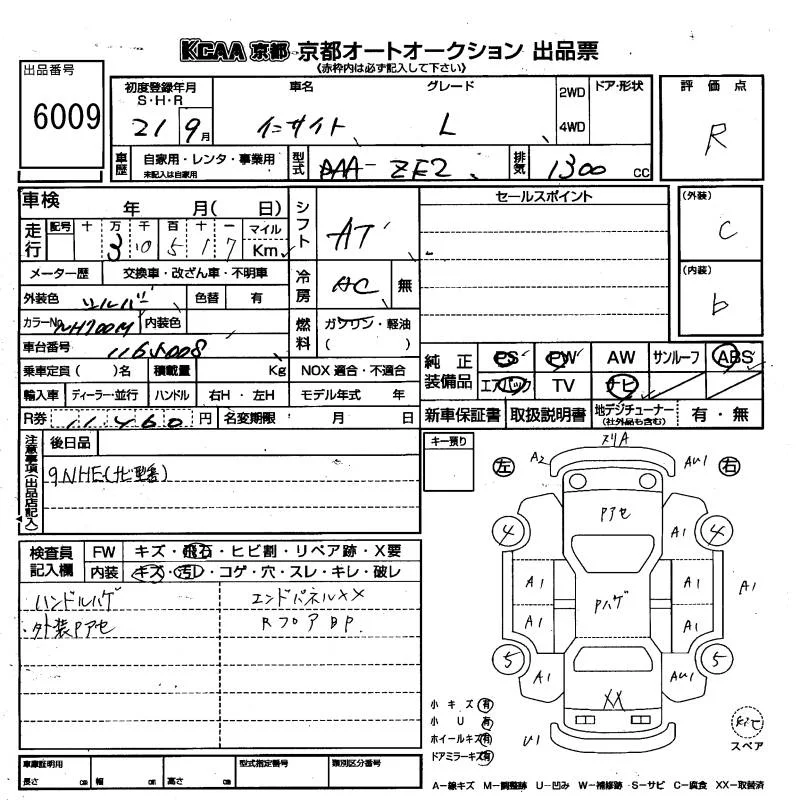 KCAA 京都 京都オートオークション 出品票
《赤枠内は必ず記入して下さい》
出品番号
6009
初度登録年月
S・H・R
21 9月
車名
インサイト
グレード
L
2WD
4WD
ドア・形状
評価点
R
車歴
自家用・レンタ・事業用
未記入は自家用
型式
DAA-ZE2
排気
1300 CC
車検 年 月( 日)
シフト
AT
セールスポイント
(外装)
C
(内装)
b
走行
記号 十 万 千 百 十 一
3 0 5 1 7
マイル
Km
メーター歴 交換車・改ざん車・不明車
冷房
AC 無
外装色 シルバー 色替 有
カラーNo. NH700M 内装色
燃料
ガソリン・軽油
( )
車台番号
1165008
純正装備品
PS PW AW サンルーフ ABS
エアバック TV ナビ
乗車定員( )名 積載量 Kg NOX 適合・不適合
輸入車 ディーラー・並行 ハンドル 右H・左H モデル年式 年
新車保証書 取扱説明書 地デジチューナー 有・無
(社外品も含む)
R券 11,460円 名変期限 月 日
注意事項(出品店記入)
後日品
9NHE(ナビ型番)
キー預り
検査員記入欄
FW キズ・飛石・ヒビ割・リペア跡・X要
内装 キズ・汚レ・コゲ・穴・スレ・キレ・破レ
ハンドルハゲ
・外装Pアセ
エンドパネルXX
RフロアBP
左
右
ヌリA
A2
AU1
Pアセ
4
4
A1
A1
A1
A1
A1
A1
Pハゲ
5
5
A1
AU1
XX
U1
小キズ 有
小U 有
ホイールキズ 有
ドアミラーキズ 有
スペア
A-線キズ M-調整跡 U-凹み W-補修跡 S-サビ C-腐食 XX-取替済
車庫証明用
長さ cm 幅 cm 高さ cm
型式指定番号
類別区分番号